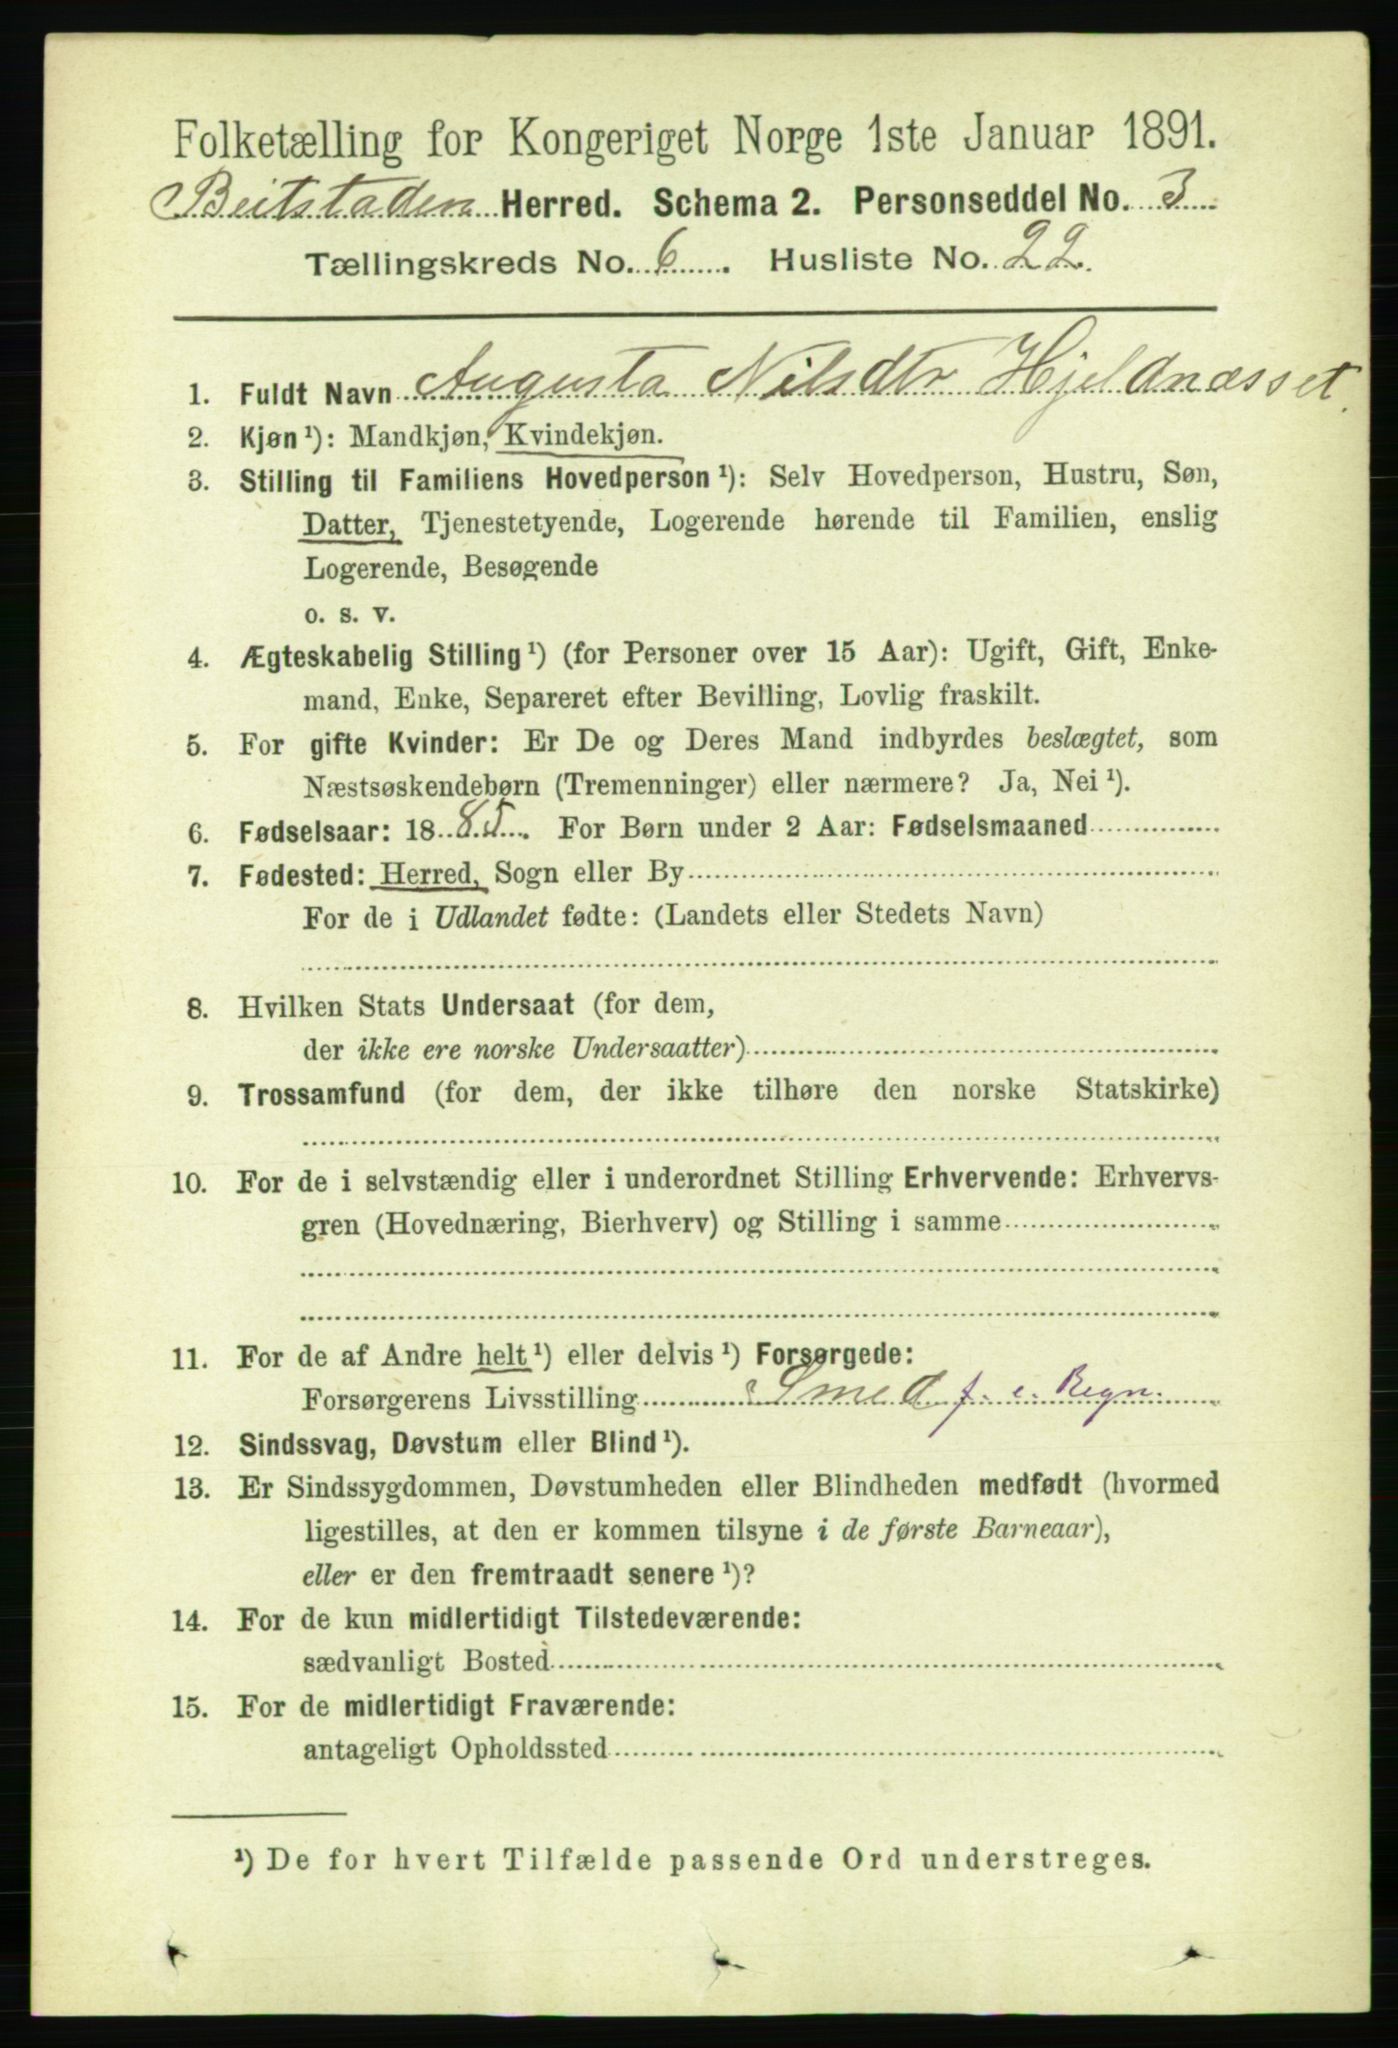 Folketælling for Kongeriget Norge 1ste Januar 1891.
Beitstaden Herred. Schema 2. Personseddel No. 3
Tællingskreds No. 6. Husliste No. 22.
1. Fuldt Navn Augusta Nilsdtr Hjeldnæsset.
2. Kjøn ¹): Mandkjøn, Kvindekjøn.
3. Stilling til Familiens Hovedperson ¹): Selv Hovedperson, Hustru, Søn,
Datter, Tjenestetyende, Logerende hørende til Familien, enslig
Logerende, Besøgende
o. s. v.
4. Ægteskabelig Stilling ¹) (for Personer over 15 Aar): Ugift, Gift, Enke-
mand, Enke, Separeret efter Bevilling, Lovlig fraskilt.
5. For gifte Kvinder: Er De og Deres Mand indbyrdes beslægtet, som
Næstsøskendebørn (Tremenninger) eller nærmere? Ja, Nei ¹).
6. Fødselsaar: 1885. For Børn under 2 Aar: Fødselsmaaned
7. Fødested: Herred, Sogn eller By
For de i Udlandet fødte: (Landets eller Stedets Navn)
8. Hvilken Stats Undersaat (for dem,
der ikke ere norske Undersaatter)
9. Trossamfund (for dem, der ikke tilhøre den norske Statskirke)
10. For de i selvstændig eller i underordnet Stilling Erhvervende: Erhvervs-
gren (Hovednæring, Bierhverv) og Stilling i samme
11. For de af Andre helt ¹) eller delvis ¹) Forsørgede:
Forsørgerens Livsstilling Smed f. e. Regn.
12. Sindssvag, Døvstum eller Blind ¹).
13. Er Sindssygdommen, Døvstumheden eller Blindheden medfødt (hvormed
ligestilles, at den er kommen tilsyne i de første Barneaar),
eller er den fremtraadt senere ¹)?
14. For de kun midlertidigt Tilstedeværende:
sædvanligt Bosted
15. For de midlertidigt Fraværende:
antageligt Opholdssted
¹) De for hvert Tilfælde passende Ord understreges.